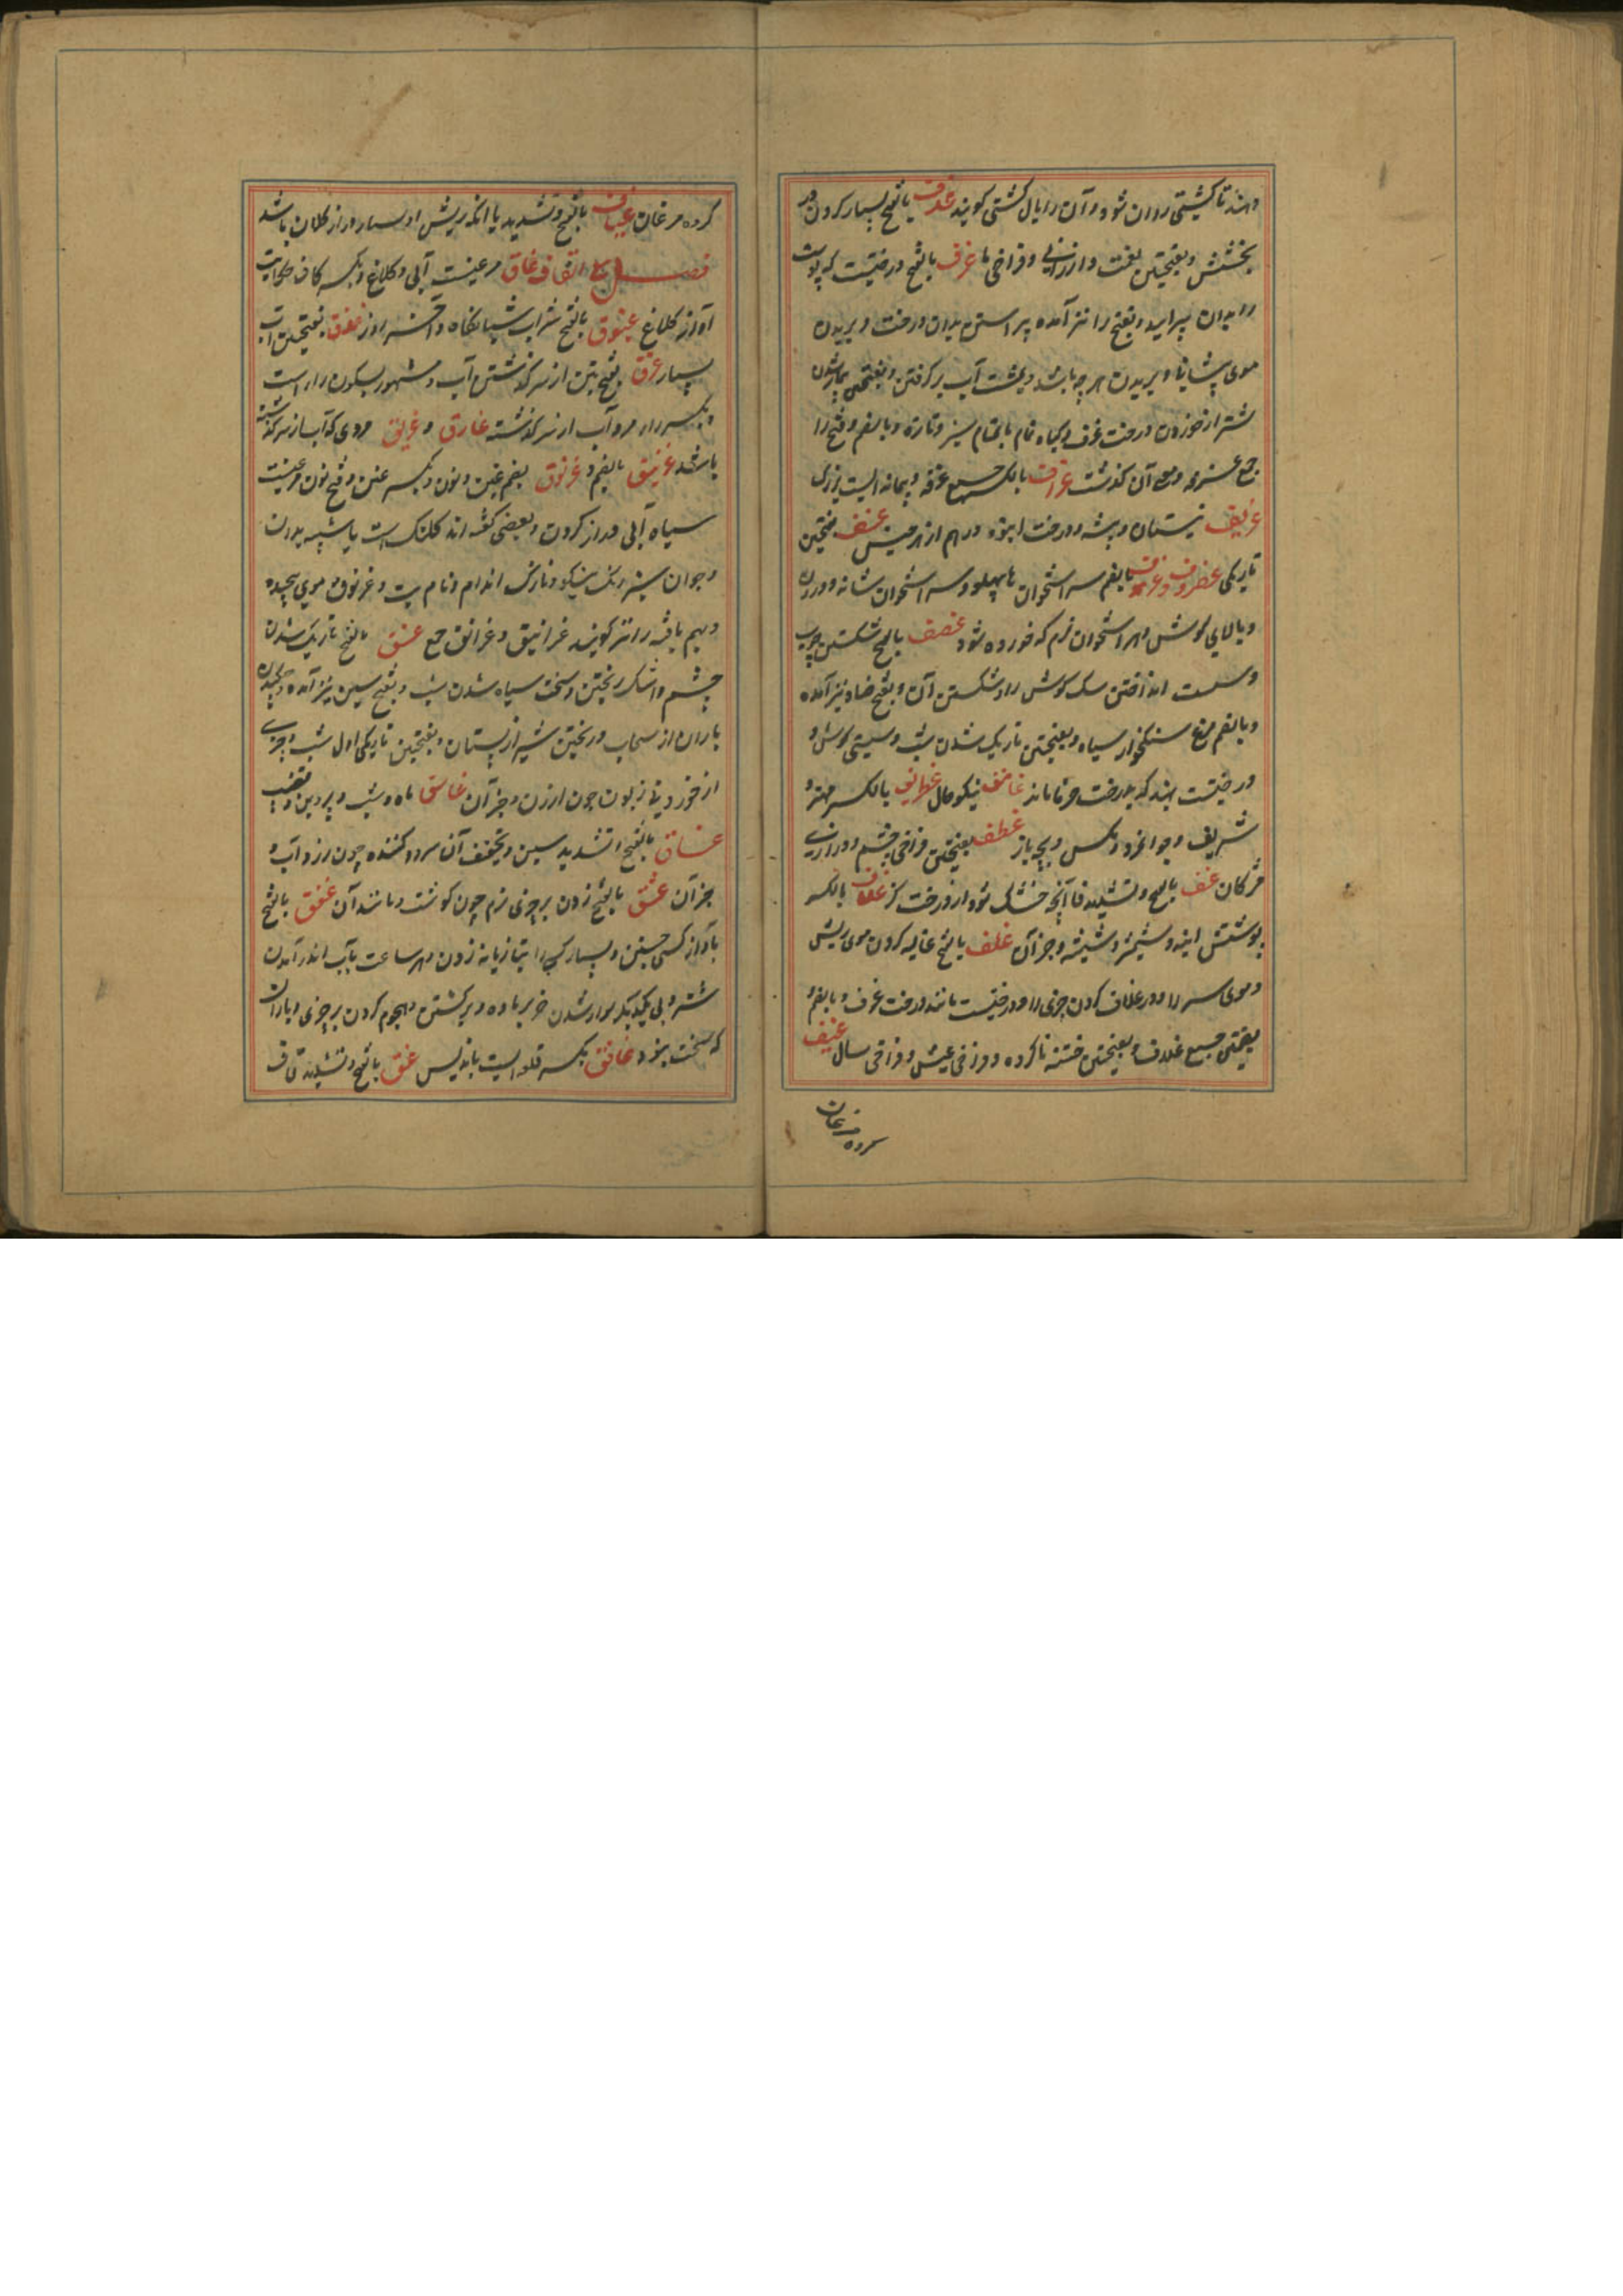 دهند تا کشتی روان شود و آن را بال کشتی کویند غدف بالفتح بسیار کردن در
بخشش و بفتحتین نعمت و ارزانی و فراخی ها غرف بالفتح درختیست که پوست
را بدان پیرایند و بفتح را نیز آمده پیراستن بدان درخت و بریدن
موی پیشانی و بریدن هر چه باشد و بمشت آب برکرفتن و بفتحتین بیمار شدن
شتر از خوردن درخت غرف و کیاه تمام سبز و تازه و بالضم و فتح را
جمع غرفه و معنی آن کذشت غراف بالکسر جمع غرفه و پیمانه ایست بزرک
غریف نیستان و بیشه و درخت انبوه درهم از هر جنس غسف بفتحتین
تاریکی غضروف و غرضوف بالضم سر استخوان پهلو و سر استخوان شانه و درون
و بالای کوش و هر استخوان نرم که خورده شود غضف بالفتح شکستن چوب
و سست انداختن سک کوش را و شکستن آن و بفتح ضاد نیز آمده
و بالضم مرغ سنکخوار سیاه و بفتحتین تاریک شدن شب و سستی کوش و
درختیست بهند که بدرخت خرما ماند غاضف نیکو حال غطریف بالکسر مهتر و
شریف و جوانمرد و مکس و بچه باز غطف بفتحتین فراخی چشم و درازی
مژکان غف بالفتح و تشدید فا آنچه خشک شود از درخت تر غلاف بالکسر
پوشش آینه و شمشیر و شیشه و جز آن غلف بالفتح غالیه کردن موی ریش
و موی سر را و در غلاف کردن چیزی را و درختیست مانند درخت غرف و بالضم و
بضمتین جمع غلاف و بفتحتین ختنه ناکرده و فراخی عیش و فراخی سال غیف
کروه مرغان
کروه مرغان غیاف بالفتح و تشدید یا آنکه ریش او بسیار دراز و کلان باشد
فصل القاف غاق مرغیست آبی و کلاغ و بکسر قاف حکایت
آواز کلاغ غبوق بالفتح شراب شبانکاه و آخر روز غدق بفتحتین آب
بسیار غرق بفتحتین از سر کذشتن آب و مشهور بسکون را است
و بکسر را مرد آب از سر کذشته غارق و غریق مردی که آب از سر کذشته
باشد غرنیق بالضم و غرنوق بضم غین و نون و بکسر غین و فتح نون مرغیست
سیاه آبی دراز کردن و بعضی کفته اند کلنک است یا شبیه بدان
و جوان سپید رنک نیکو و نازک اندام و نام بت و غرنوق موی پیچیده
و بهم بافته را نیز کویند غرانیق و غرانق جمع غسق بالفتح تاریک شدن
چشم و اشک ریختن و سخت سیاه شدن شب و بفتح سین نیز آمده و چکیدن
باران از سحاب و ریختن شیر از پستان و بفتحتین تاریکی اول شب و چیزی
از خوردنیها زبون چون ارزن و جز آن غاسق ماه و شب و پروین و قضیب
غساق بالفتح و تشدید سین و تخفیف آن سرد و کنده چون زرد آب و
جز آن غشق بالفتح زدن بر چیزی نرم چون کوشت و مانند آن غفق بالفتح
باواز کسی جستن و بسیار کسی را بتازیانه زدن و هر ساعت بآب اندر آمدن
شتر و پی یکدیکر سوار شدن خر بر ماده و برکشتن و هجوم کردن بر چیزی و باران
که سخت نبود غافق بکسر قلعه ایست باندلس غق بالفتح و تشدید قاف